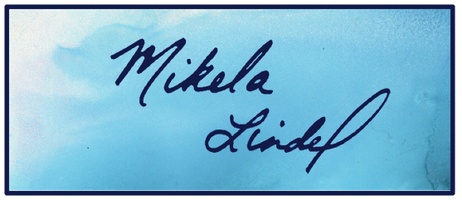 Mikela
Lindel